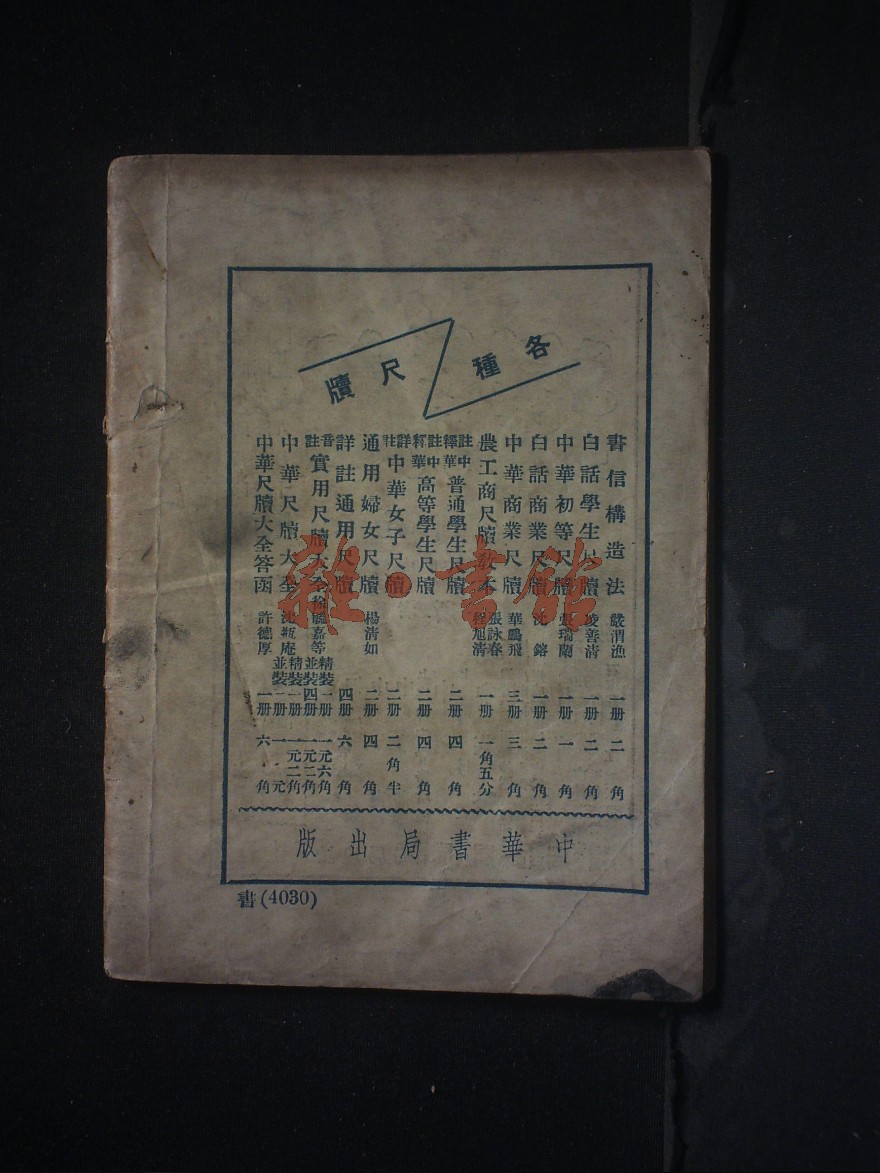 各種尺牘
書信構造法 嚴渭漁 一册 二角
白話學生尺牘 凌善清 一册 二角
中華初等尺牘 張瑞蘭 一册 一角
白話商業尺牘 沈鎔 一册 二角
中華商業尺牘 華鵬飛 三册 三角
農工商尺牘教本 張詠春 程旭清 一册 一角五分
註釋中華普通學生尺牘 二册 四角
註釋中華高等學生尺牘 二册 四角
詳註中華女子尺牘 二册 二角半
通用婦女尺牘 楊清如 二册 四角
詳註通用尺牘 四册 六角
音註實用尺牘大全 徐毓嘉等 精裝一册 一元六角 並裝四册 一元二角
中華尺牘大全 沈瓶庵 精裝一册 一元二角 並裝二册 一元
中華尺牘大全答函 許德厚 一册 六角
中華書局出版
書(4030)
雜·書館